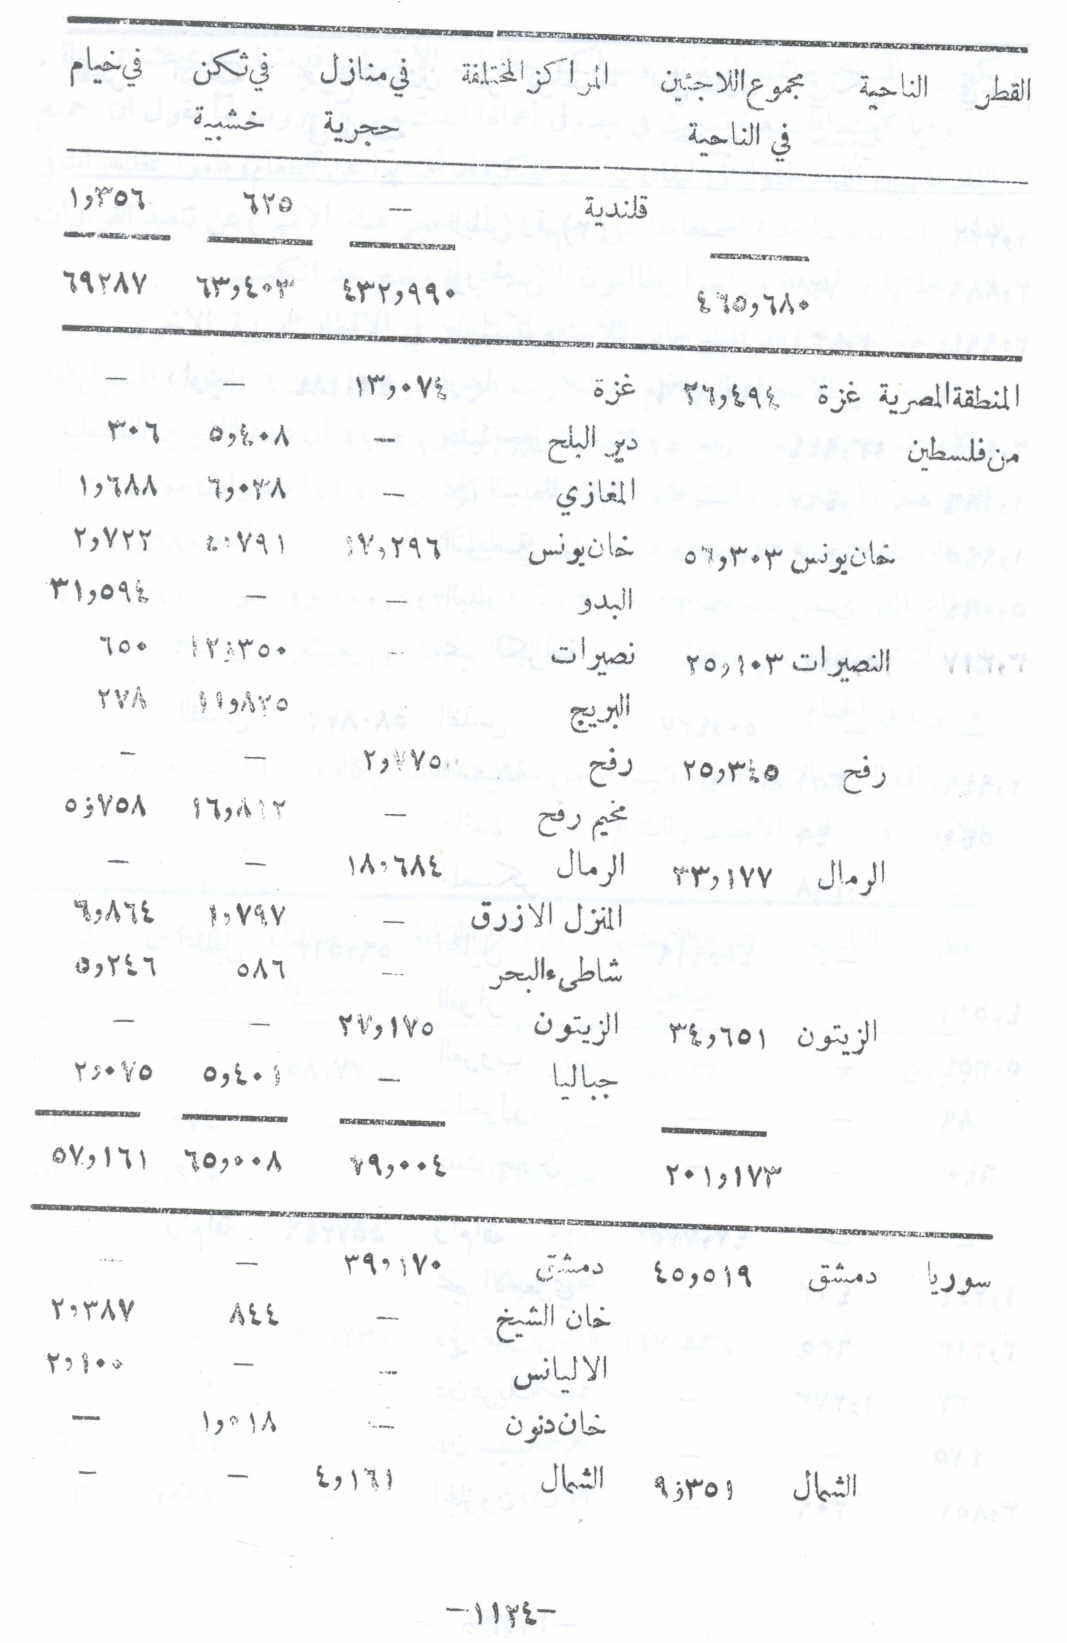 القطر الناحية مجموع اللاجئين المراكز المختلفة في منازل في ثكن في خيام
في الناحية حجرية خشبية
قلندية — ٦٢٥ ١,٣٥٦
٤٦٥,٦٨٠ ٤٣٢,٩٩٠ ٦٣,٤٠٣ ٦٩٢٨٧
المنطقة المصرية غزة ٢٦,٤٩٤ غزة ١٣,٠٧٤ — —
من فلسطين دير البلح — ٥,٤٠٨ ٣٠٦
المغازي — ٦,٠٣٨ ١,٦٨٨
خان يونس ٥٦,٣٠٣ خان يونس ١٧,٢٩٦ ٤٠٧٩١ ٢,٧٢٢
البدو — — ٣١,٥٩٤
النصيرات ٢٥,١٠٣ نصيرات — ١٢,٣٥٠ ٦٥٠
البريج ١١,٨٢٥ ٢٧٨
رفح ٢٥,٣٤٥ رفح ٢,٧٧٥ — —
مخيم رفح — ١٦,٨١٢ ٥,٧٥٨
الرمال ٣٣,١٧٧ الرمال ١٨,٦٨٤ — —
المنزل الازرق — ١,٧٩٧ ٦,٨٦٤
شاطىء البحر — ٥٨٦ ٥,٢٤٦
الزيتون ٣٤,٦٥١ الزيتون ٢٧,١٧٥ — —
جباليا — ٥,٤٠١ ٢,٠٧٥
٢٠١,١٧٣ ٧٩,٠٠٤ ٦٥,٠٠٨ ٥٧,١٦١
سوريا دمشق ٤٥,٥١٩ دمشق ٣٩,١٧٠ — —
خان الشيخ — ٨٤٤ ٢,٣٨٧
الاليانس — — ٢,١٠٠
خان دنون — ١,٠١٨ —
الشمال ٩,٣٥١ الشمال ٤,١٦١ — —
—١١٣٤—